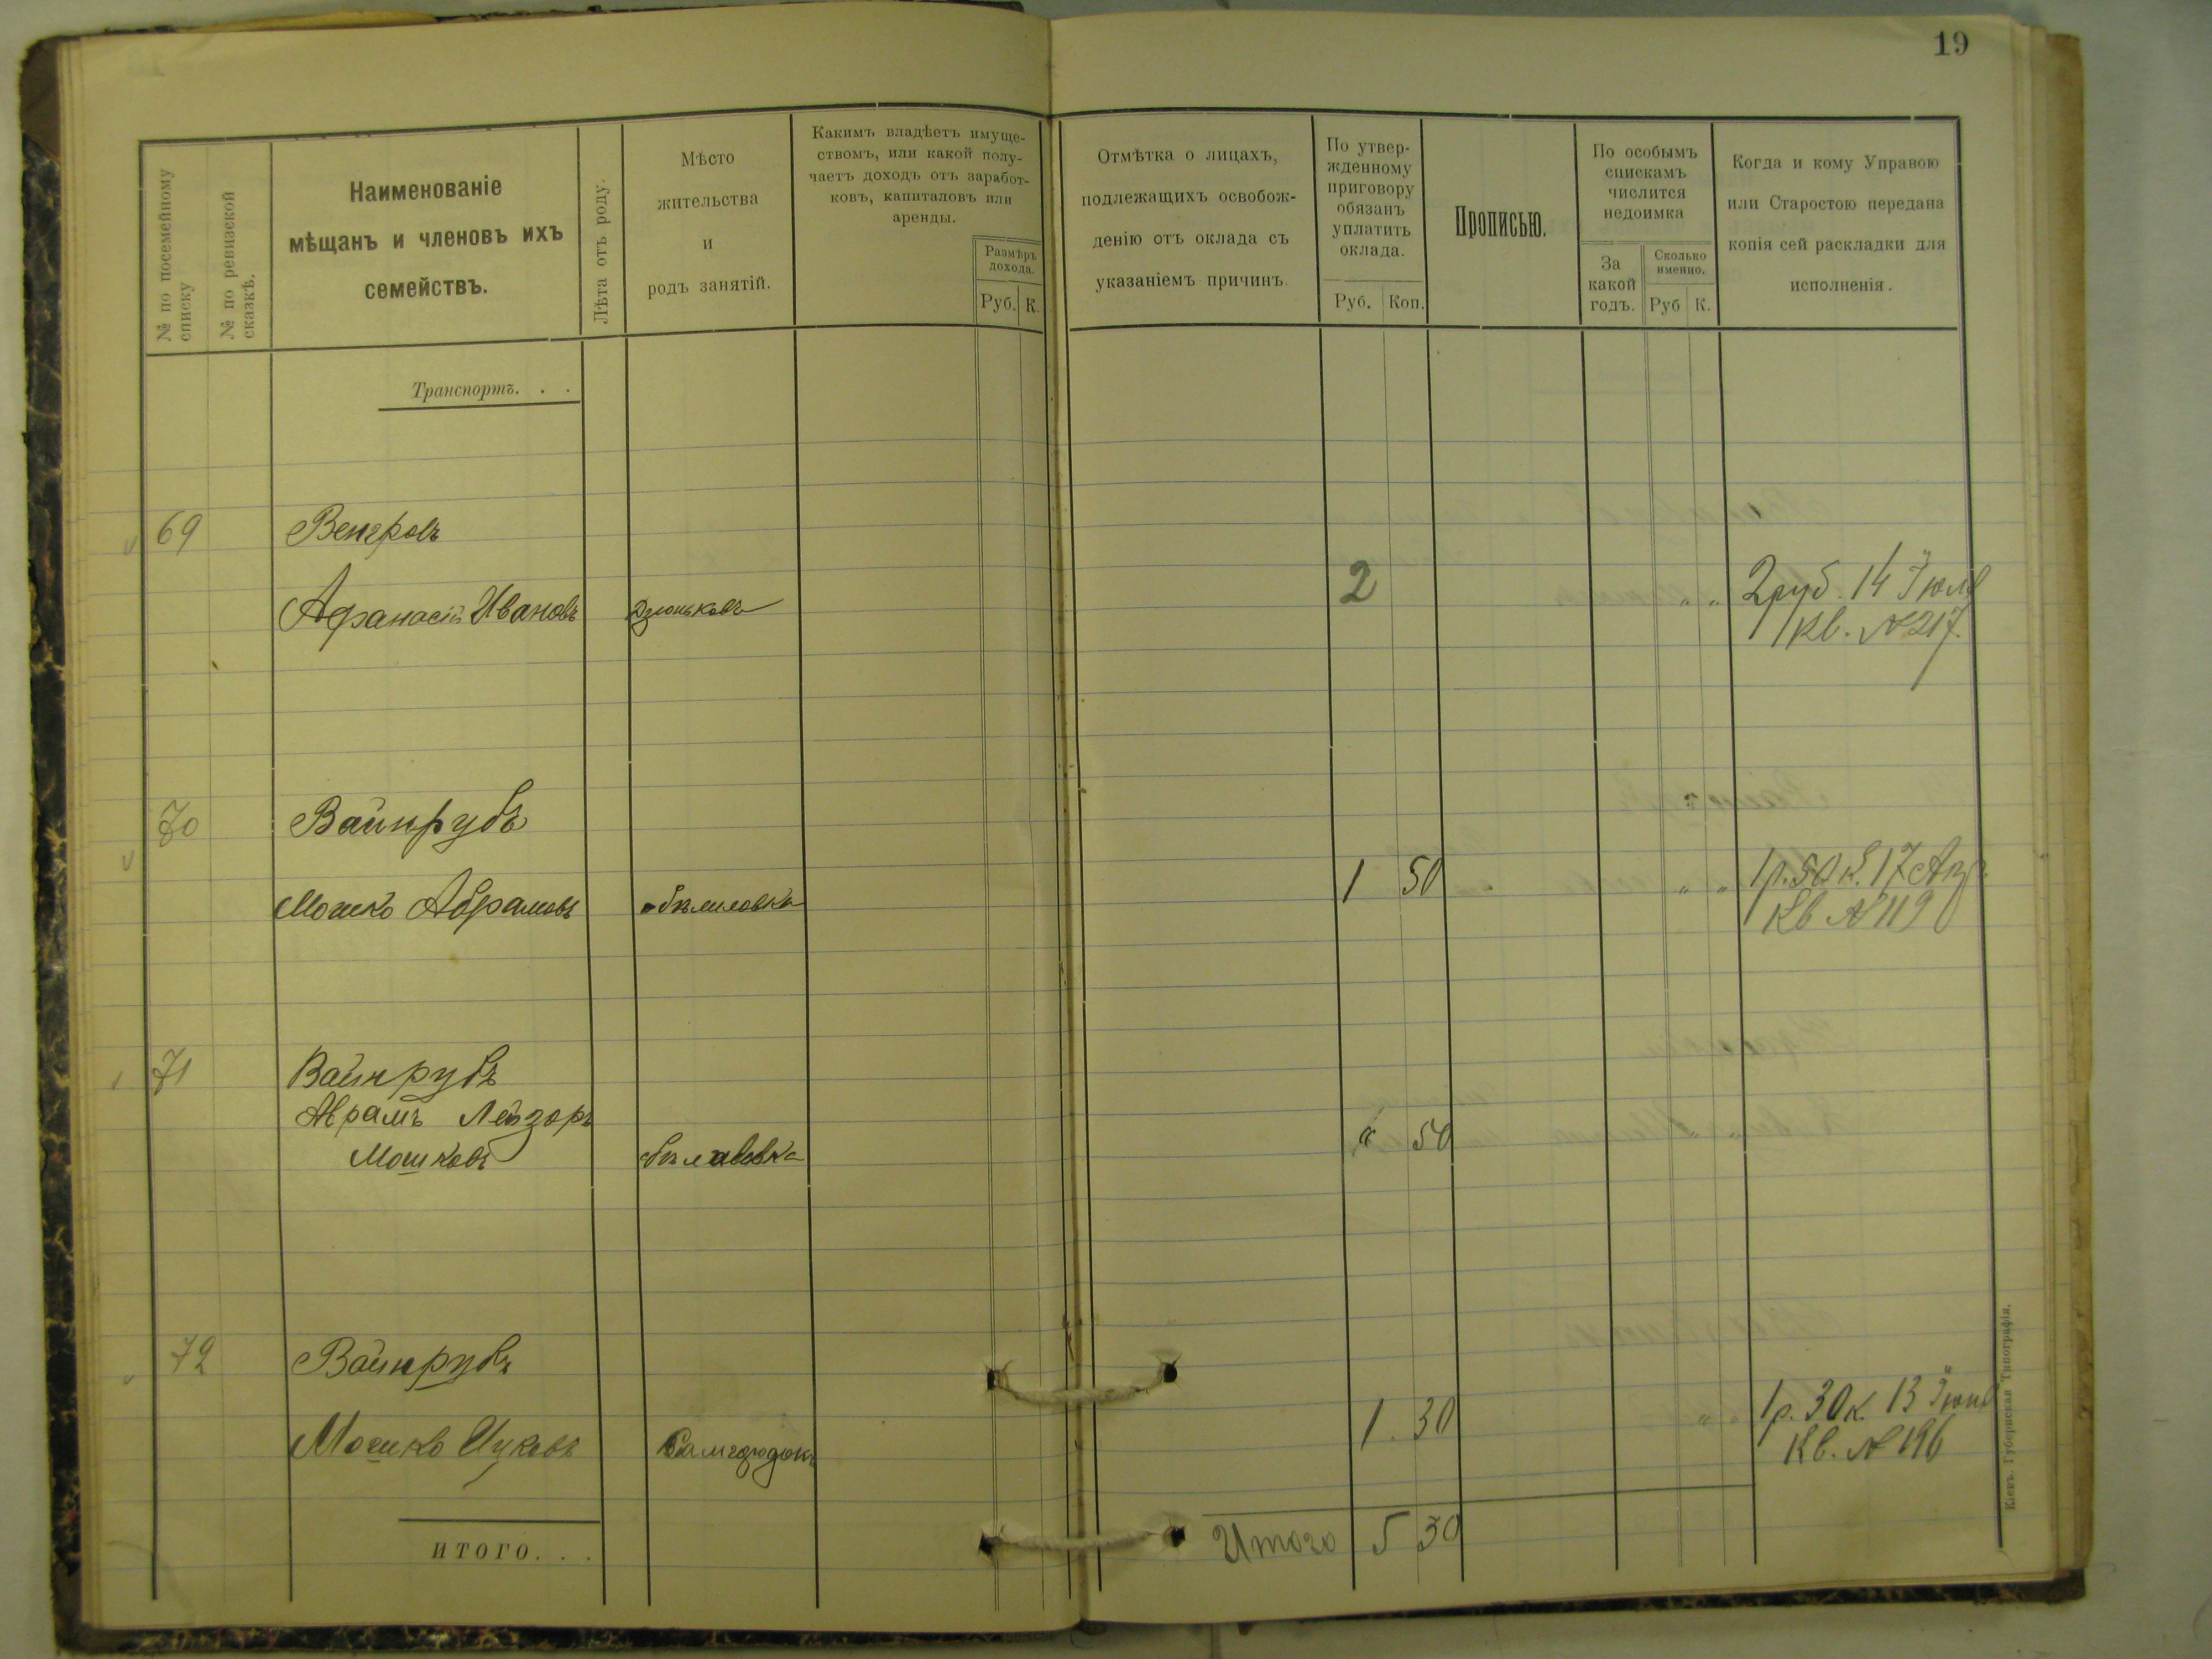 19
№ по посемейному
списку
№ по ревизской
сказкѣ.
Наименованіе
мѣщанъ и членовъ ихъ
семействъ.
Лѣта отъ роду.
Мѣсто
жительства
и
родъ занятій.
Какимъ владѣетъ имуще-
ствомъ, или какой полу-
чаетъ доходъ отъ заработ-
ковъ, капиталовъ или
аренды.
Размѣръ
дохода.
Руб. К.
Отмѣтка о лицахъ,
подлежащихъ освобож-
денію отъ оклада съ
указаніемъ причинъ.
По утвер-
жденному
приговору
обязанъ
уплатить
оклада.
Руб. Коп.
Прописью.
По особымъ
спискамъ
числится
недоимка
За
какой
годъ.
Сколько
именно.
Руб К.
Когда и кому Управою
или Старостою передана
копія сей раскладки для
исполненія.
Транспортъ. . .
69 Венгровъ
Афанасій Ивановъ Дзюньковъ 2 „ „ 2 руб. 14 Іюля
Кв. № 217.
70 Вайнрубъ
Мошко Абрамовъ 1 50 „ „ 1 р. 50 к. 17 Апр.
Кв № 119
71 Вайнрубъ
Аврамъ Лейзоръ
Мошковъ Бѣлавовка „ 50
72 Вайнрубъ
Мошко Ицковъ Самгородокъ 1. 30 „ „ 1 р. 30 к. 13
Кв. № 196
ИТОГО. . .
Итого 5 30
Кіевъ. Губернская Типографія.